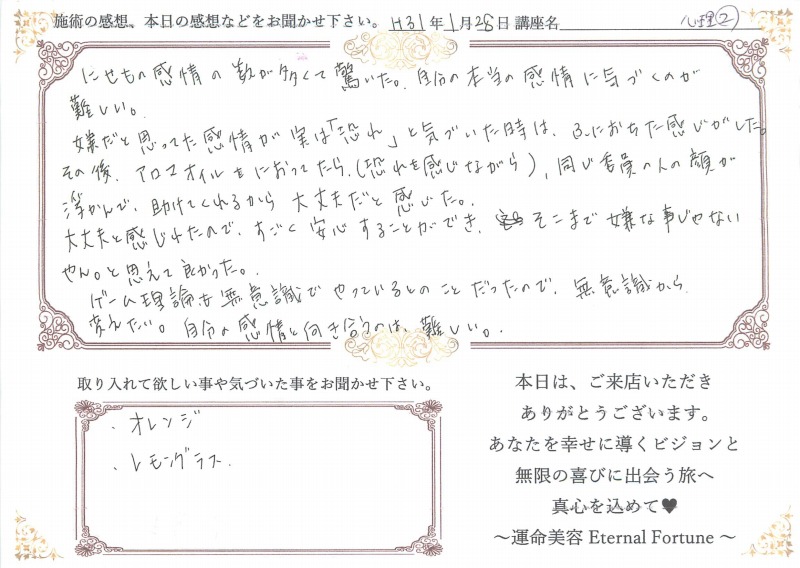 施術の感想、本日の感想などをお聞かせ下さい。 H31年1月28日 講座名 心理②
にせもの感情の数が多くて驚いた。自分の本当の感情に気づくのが
難しい。
嫌だと思ってた感情が実は「恐れ」と気づいた時は、ふにおちた感じがした。
その後、アロマオイルをにおってたら、(恐れを感じながら)、同じ委員の人の顔が
浮かんで、助けてくれるから大丈夫だと感じた。
大丈夫と感じれたので、すごく安心することができ、そこまで嫌な事じゃない
やん。と思えて良かった。
ゲーム理論も無意識でやっているとのことだったので、無意識から
変えたい。自分の感情と向き合うのは、難しい。
取り入れて欲しい事や気づいた事をお聞かせ下さい。
・オレンジ
・レモングラス
本日は、ご来店いただき
ありがとうございます。
あなたを幸せに導くビジョンと
無限の喜びに出会う旅へ
真心を込めて♥
～運命美容 Eternal Fortune ～